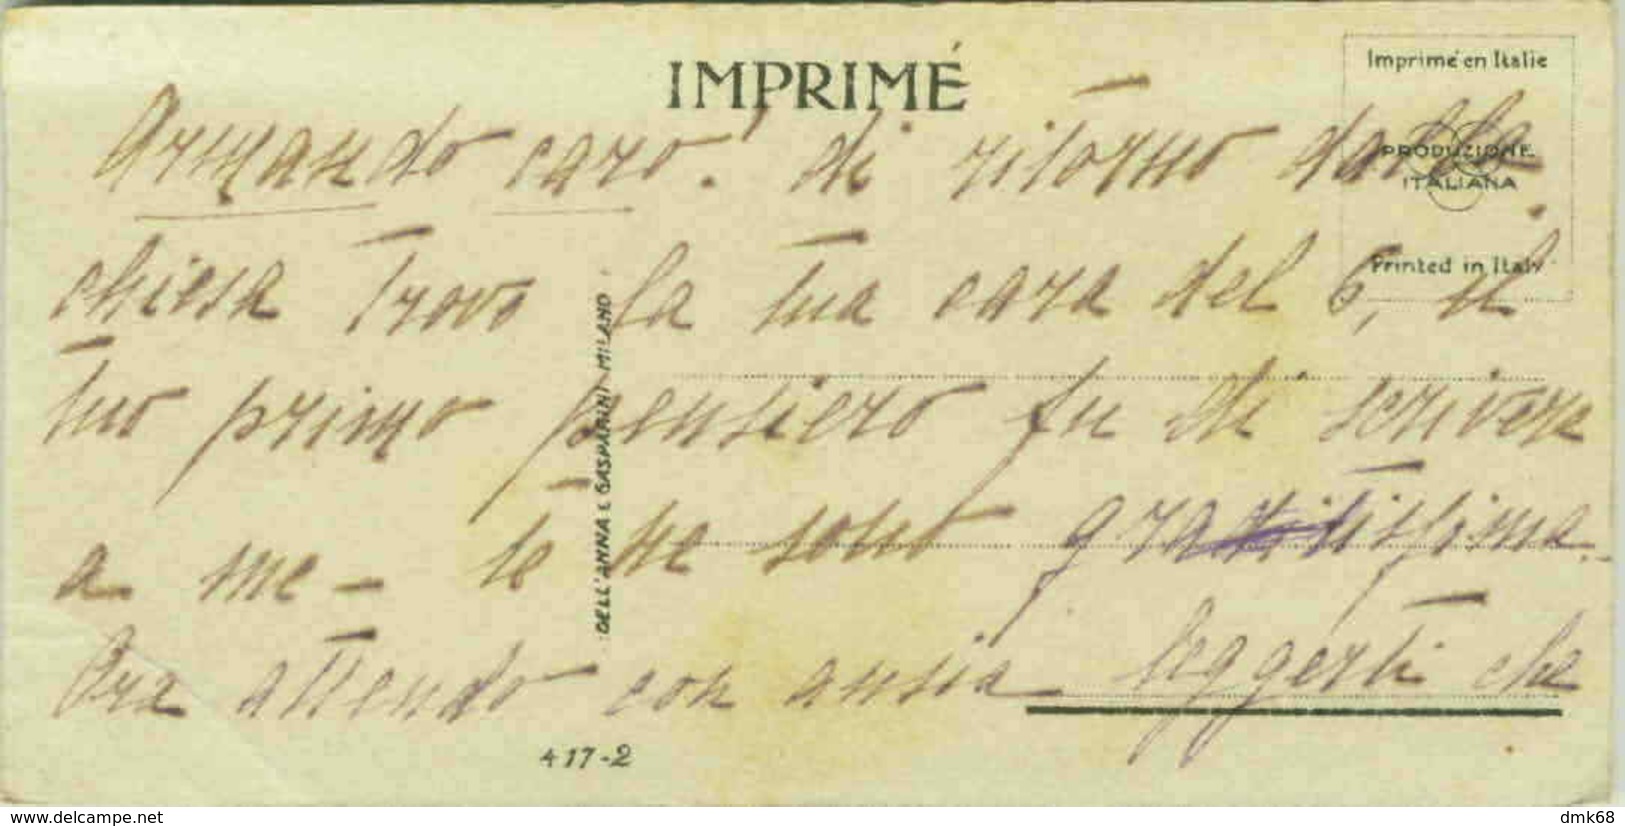 IMPRIMÉ
Imprimé en Italie
PRODUZIONE
ITALIANA
Printed in Italy
Armando caro! di ritorno dalla
chiesa trovo la tua cara del 6, il
tuo primo pensiero fu di scrivere
a me - te ne sono gratissima.
Ora attendo con ansia leggerti che
DELL'ANNA E GASPARINI MILANO
417-2
www.delcampe.net
dmk68